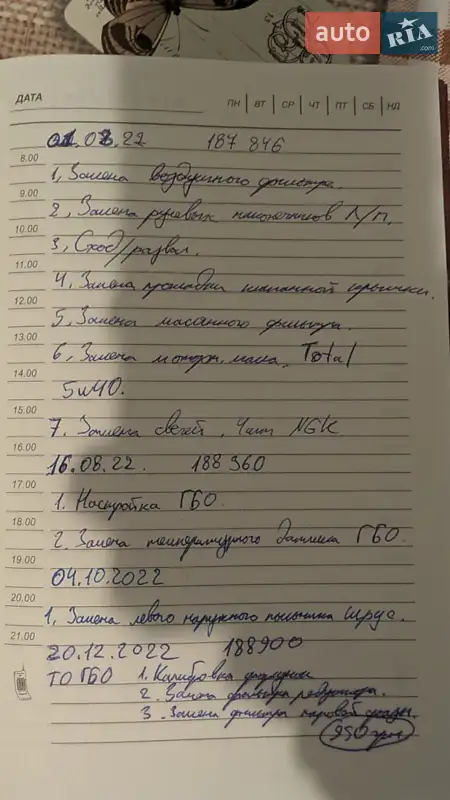 auto RIA .com
ДАТА ПН ВТ СР ЧТ ПТ СБ НД
01.08.22 187 846
8.00
1, Замена воздушного фильтра.
9.00
2, Замена рулевых наконечников Л/П.
10.00
3, Сход/развал.
11.00
4, Замена прокладки клапанной крышки.
12.00
5, Замена масляного фильтра.
13.00
6, Замена моторн. масла. Total
14.00
5w40.
15.00
7. Замена свечей. 4шт NGK
16.00
16.08.22. 188 360
17.00
1. Настройка ГБО.
18.00
2. Замена температурного датчика ГБО.
19.00
04.10.2022
20.00
1, Замена левого наружного пыльника шрус.
21.00
20.12.2022 188900
ТО ГБО 1. Калибровка форсунок
2. Замена фильтра редуктора.
3. Замена фильтра паровой фазы.
950 грн